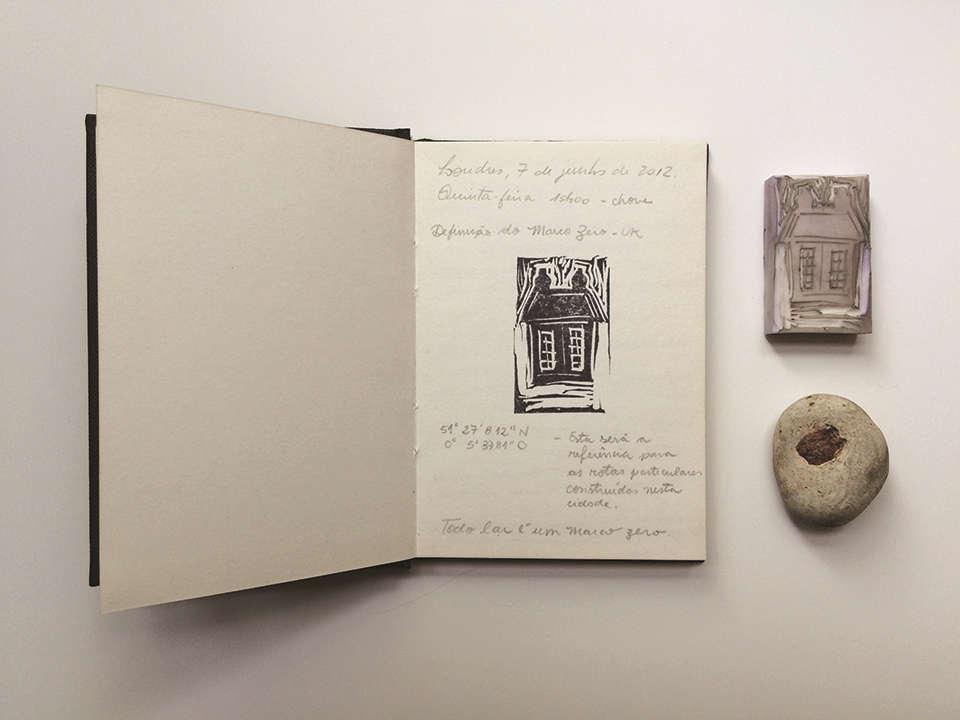 Londres, 7 de junho de 2012.
Quinta-feira 15h00 - chove
Definição do Marco Zero - UK
51° 27' 8.12" N
0° 5' 37.81" O
- Esta será a
referência para
as rotas particulares
construídas nesta
cidade.
Todo lar é um marco zero.